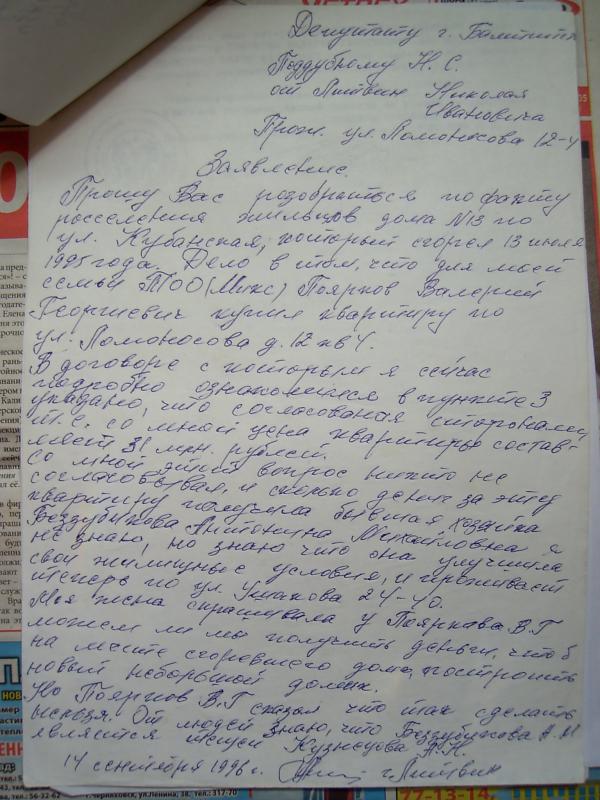 Депутату г. Балтийска
Поддубному Н. С.
от Литвин Николая
Ивановича
Прож. ул. Ломоносова 12-4
Заявление.
Прошу Вас разобраться по факту
расселения жильцов дома N13 по
ул. Кубанская, который сгорел 13 июля
1995 года. Дело в том, что для моей
семьи ТОО (Микс) Поярков Валерий
Георгиевич купил квартиру по
ул. Ломоносова д. 12 кв 4.
В договоре с которым я сейчас
подробно ознакомился в пункте 3
указано, что согласованая сторонами
т. е. со мной цена квартиры состав-
ляет 31 млн. рублей.
Со мной этот вопрос никто не
согласовывал, и сколько денег за эту
квартиру получила бывшая хозяйка
Беззубикова Антонина Михайловна я
не знаю, но знаю что она улучшила
свои жилищные условия, и проживает
теперь по ул. Ушакова 24-40.
Моя жена спрашивала у Пояркова В.Г
можем ли мы получить деньги, чтоб
на месте сгоревшего дома, построить
новый небольшой домик.
Но Поярков В.Г сказал что так сделать
нельзя. От людей знаю, что Беззубикова А. М
является тещей Кузнецова А.Н.
14 сентября 1996 г. Литвин
г. Черняховск, ул.Ленина, 38, тел.:
77-13-14